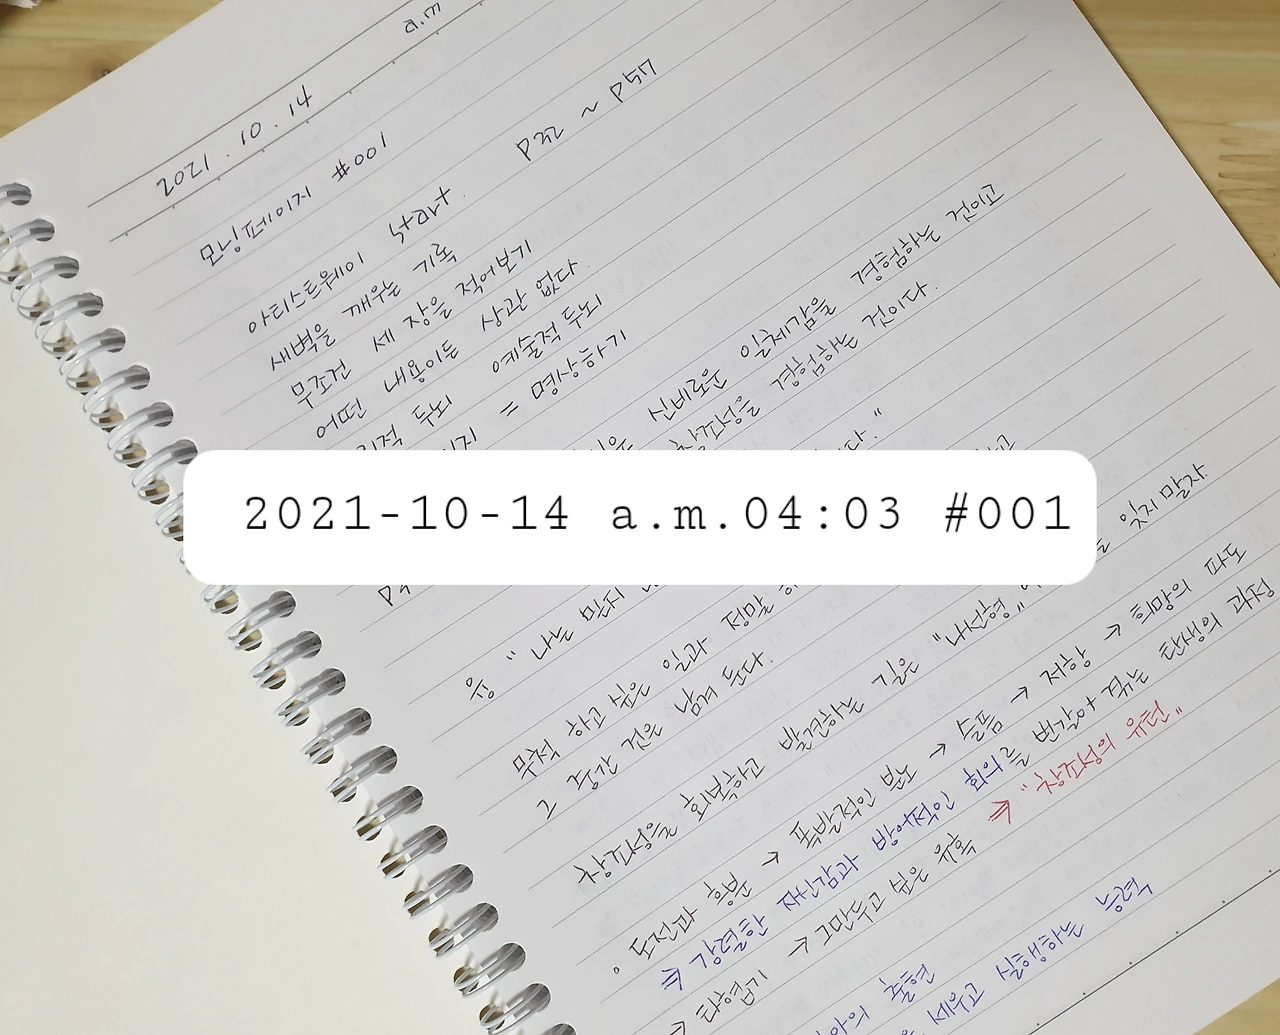 a.m
2021. 10. 14
모닝페이지 #001
아티스트웨이 start. P22 ~ P57
새벽을 깨우는 기록
무조건 세 장을 적어보기
어떤 내용이든 상관 없다.
리적 두뇌 예술적 두뇌
지 = 명상하기
신비로운 일체감을 경험하는 것이고
창조성을 경험하는 것이다.
다."
2021-10-14 a.m.04:03 #001
"나는
무척 하고 싶은 일과 정말
그 중간 것은 남겨 둔다.
창조성을 회복하고 발견하는 길은 "나선형" 잊지말자.
· 도전과 흥분 → 폭발적인 분노 → 슬픔 → 저항 → 희망의 파도
⇒ 강렬한 재신감과 방어적인 회의를 번갈아 겪는 탄생의 과정
→ 타협기 → 그만두고 싶은 유혹 ⇒ "창조성의 유턴"
자아의 출현
세우고 실행하는 능력